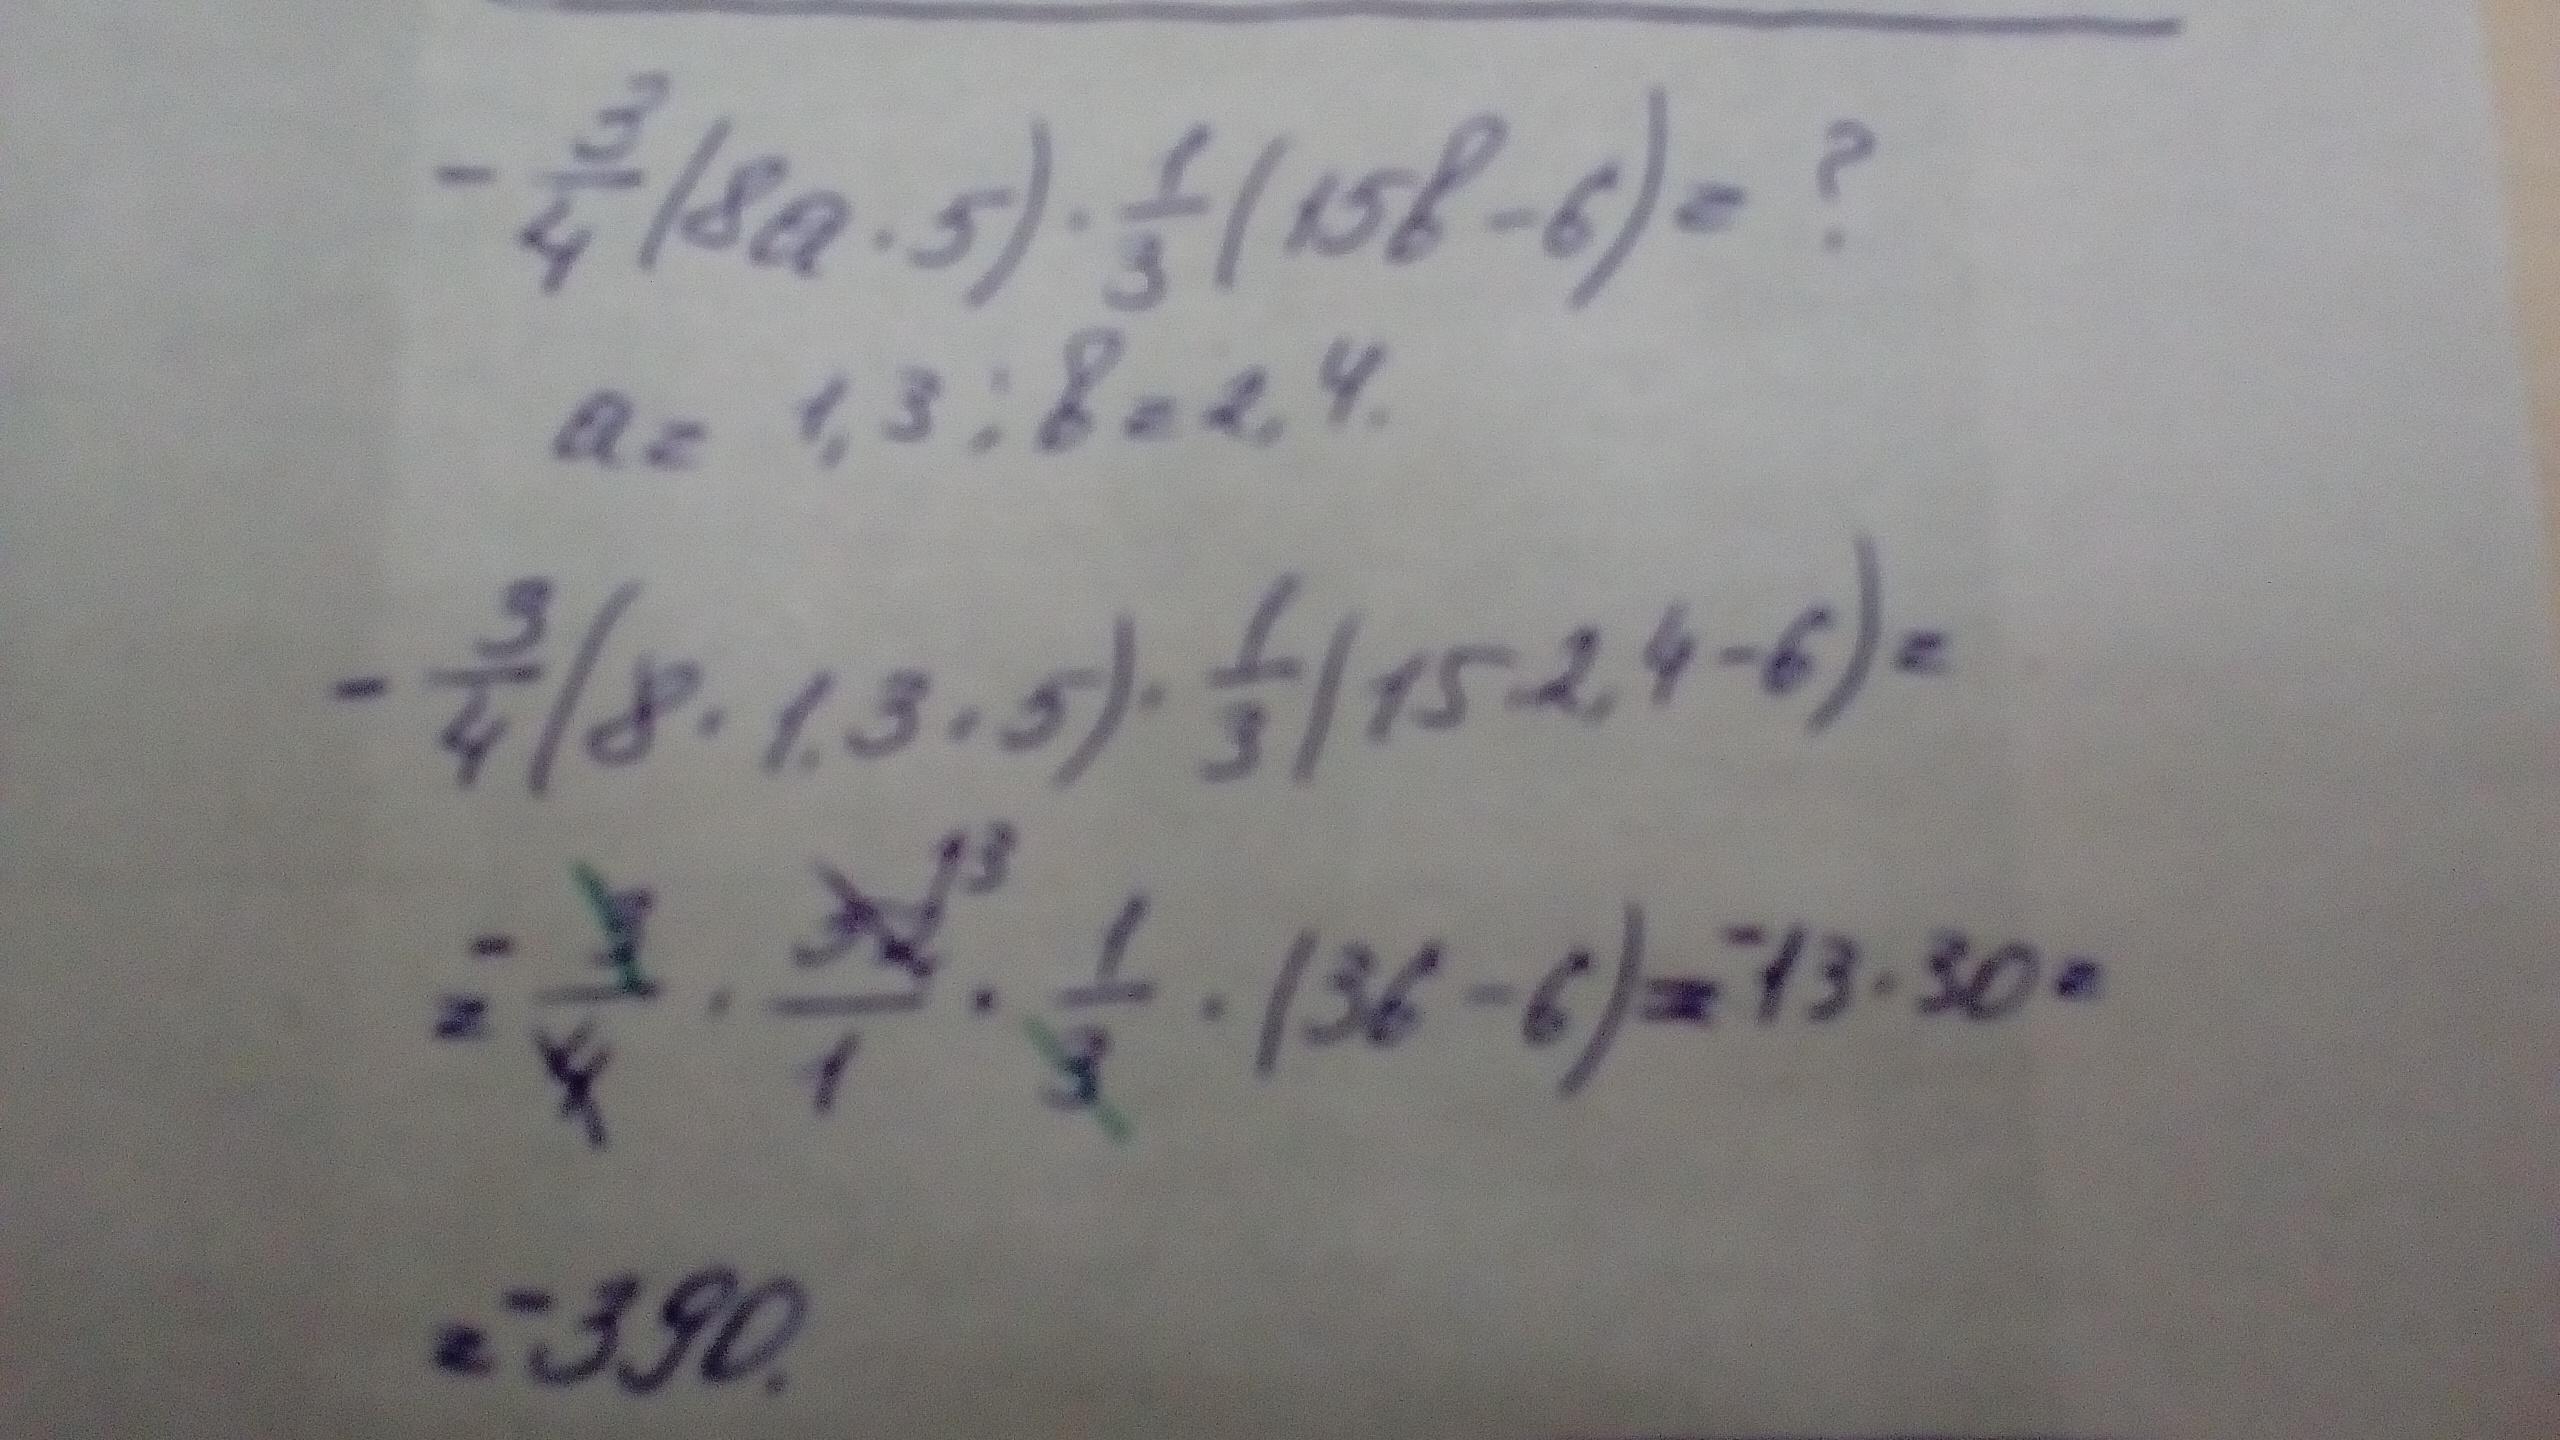 - 3/4 (8a · 5) · 1/3 (15b - 6) = ?
a = 1,3 ; b = 2,4.
- 3/4 (8 · 1,3 · 5) · 1/3 (15 · 2,4 - 6) =
= - 3/4 · 52/1 13 · 1/3 · (36 - 6) = -13 · 30 =
= -390.